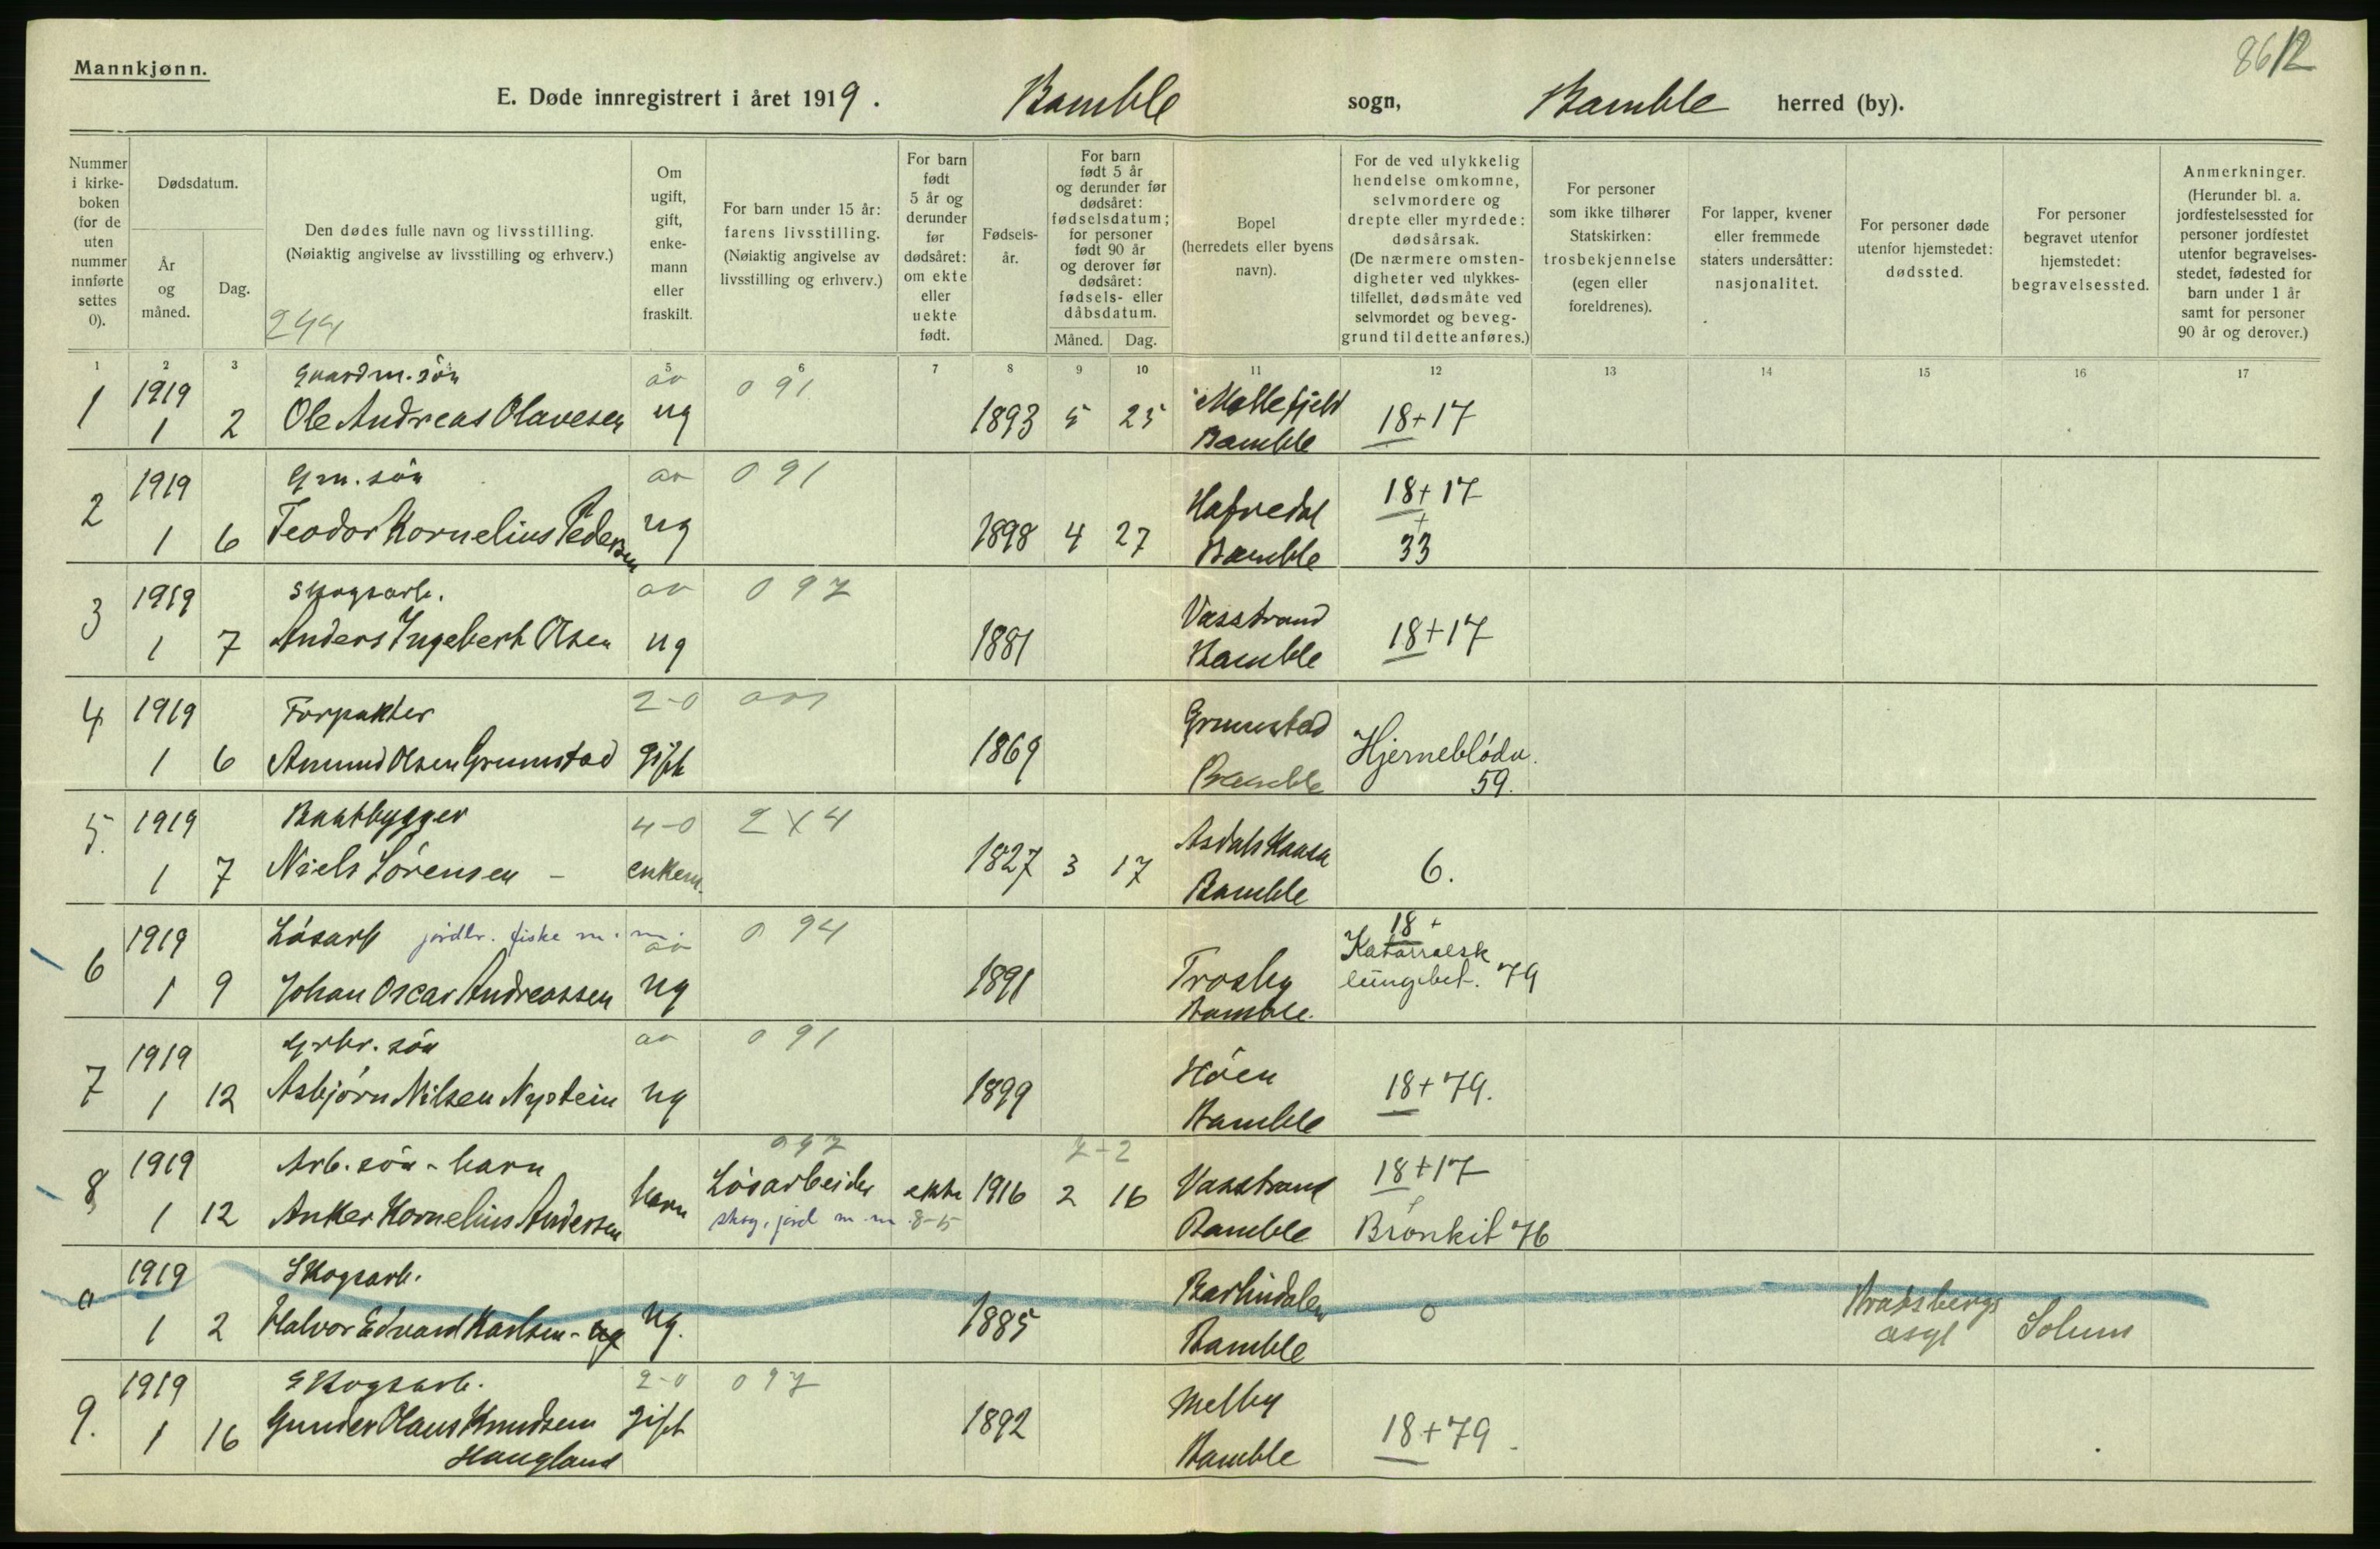 8612
Mannkjønn.
E. Døde innregistrert i året 1919. Bamble sogn, Bamble herred (by).
Nummer i kirke-boken (for de uten nummer innførte settes 0).
Dødsdatum.
År og måned.
Dag.
Den dødes fulle navn og livsstilling.
(Nøiaktig angivelse av livsstilling og erhverv.)
244
Om ugift, gift, enke-mann eller fraskilt.
For barn under 15 år: farens livsstilling.
(Nøiaktig angivelse av livsstilling og erhverv.)
For barn født 5 år og derunder før dødsåret: om ekte eller uekte født.
Fødsels-år.
For barn født 5 år og derunder før dødsåret: fødselsdatum; for personer født 90 år og derover før dødsåret: fødsels- eller dåbsdatum.
Måned. Dag.
Bopel
(herredets eller byens navn).
For de ved ulykkelig hendelse omkomne, selvmordere og drepte eller myrdede: dødsårsak.
(De nærmere omsten-digheter ved ulykkes-tilfellet, dødsmåte ved selvmordet og beveg-grund til dette anføres.)
For personer som ikke tilhører Statskirken: trosbekjennelse (egen eller foreldrenes).
For lapper, kvener eller fremmede staters undersåtter: nasjonalitet.
For personer døde utenfor hjemstedet: dødssted.
For personer begravet utenfor hjemstedet: begravelsessted.
Anmerkninger.
(Herunder bl. a. jordfestelsessted for personer jordfestet utenfor begravelses-stedet, fødested for barn under 1 år samt for personer 90 år og derover.)
1 2 3 5 6 7 8 9 10 11 12 13 14 15 16 17
1919 Gaardm. søn ao 091 Mollefjeld
1 1 2 Ole Andreas Olavesen ug 1893 5 25 Bamble 18+17
1919 Gm. søn ao 091 Hafredal 18+17
2 1 6 Teodor Kornelius Pedersen ug 1898 4 27 Bamble + 33
1919 Skogsarb. ao 097 Vasstrand
3 1 7 Anders Ingebert Olsen ug 1881 Bamble 18+17
4 1919 Forpakter 2-0 Grumstad
1 6 Amund Olsen Grumstad gift 1869 Bamble Hjerneblödn. 59.
5. 1919 Baatbygger 4-0 2X4 Asdalskaasa
1 7 Niels Sörensen - enkem. 1827 3 17 Bamble 6.
1919 Løsarb jordbr. fiske m. m. ao 094 18 +
6 1 9 Johan Oscar Andreassen ug 1891 Trosby Bamble. Katarralsk lungebet. 79
1919 Grbr. søn ao 091 Høen
7 1 12 Asbjørn Nilsen Nystein ug 1899 Bamble 18+79.
1919 Arb. søn - barn 097 7-2 Vasstrand 18+17
8 1 12 Anker Kornelius Andersen barn Løsarbeider ekte 1916 2 16 Bamble + Bronkit 76
skog, jord m. m. 8-15
0 1919 Skogsarb. Barlindalen 0 Bratsbergs
1 2 Halvor Edvard Karlsen - ug ug. 1885 Bamble asyl Solum
1919 Skogsarb. 2-0 097 Melby
9. 1 16 Gunder Olaus Knudsen gift 1892 Bamble 18+79.
Haugland